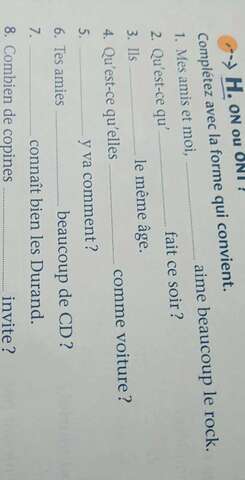 H. ON OU ONT ?
Complétez avec la forme qui convient.
1. Mes amis et moi, ______ aime beaucoup le rock.
2. Qu'est-ce qu' ______ fait ce soir ?
3. Ils ______ le même âge.
4. Qu'est-ce qu'elles ______ comme voiture ?
5. ______ y va comment ?
6. Tes amies ______ beaucoup de CD ?
7. ______ connaît bien les Durand.
8. Combien de copines ______ invite ?